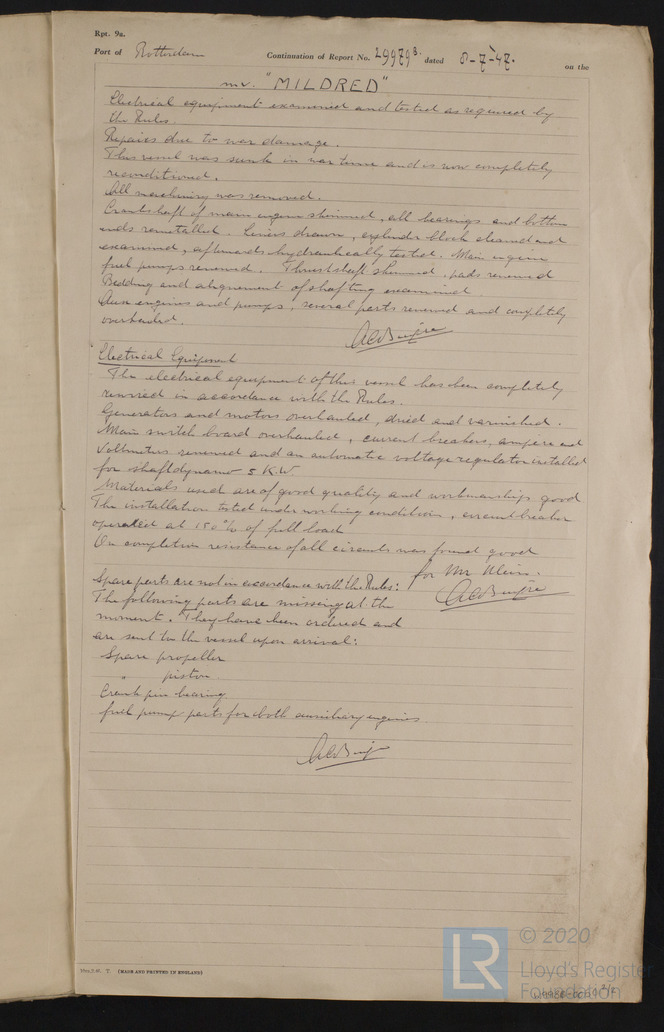 Rpt. 9a.
Port of Rotterdam Continuation of Report No. 29979B. dated 8-7-'47. on the
mv. "MILDRED"
Electrical equipment examined and tested as required by
the Rules.
Repairs due to war damage.
This vessel was sunk in war time and is now completely
reconditioned.
All machinery was removed.
Crankshaft of main engine skimmed, all bearings and bottom
ends remetalled. Liners drawn, cylinder block cleaned and
examined, afterwards hydraulically tested. Main engine
fuel pumps renewed. Thrustshaft skimmed, pads renewed
Bedding and alignement of shafting examined.
Aux engines and pumps, several parts renewed and completely
overhauled.
Electrical Equipment
The electrical equipment of this vessel has been completely
rewired in accordance with the Rules.
Generators and motors overhauled, dried and varnished.
Main switch board overhauled, current breakers, ampere and
Voltmeters renewed and an automatic voltage regulator installed
for shaftdynamo 5 K.W
Materials used are of good quality and workmanship good
The installation tested under working conditions, circuit breaker
operated at 150% of full load
On completion resistance of all circuits was found good
for Mr.
Spare parts are not in accordance with the Rules:
The following parts are missing at the
moment. They have been ordered and
are sent to the vessel upon arrival:
Spare propeller
" piston
Crank pin bearing
fuel pump parts for both auxiliary engines
T. (MADE AND PRINTED IN ENGLAND)
LR
© 2020
Lloyd's Register
Foundation